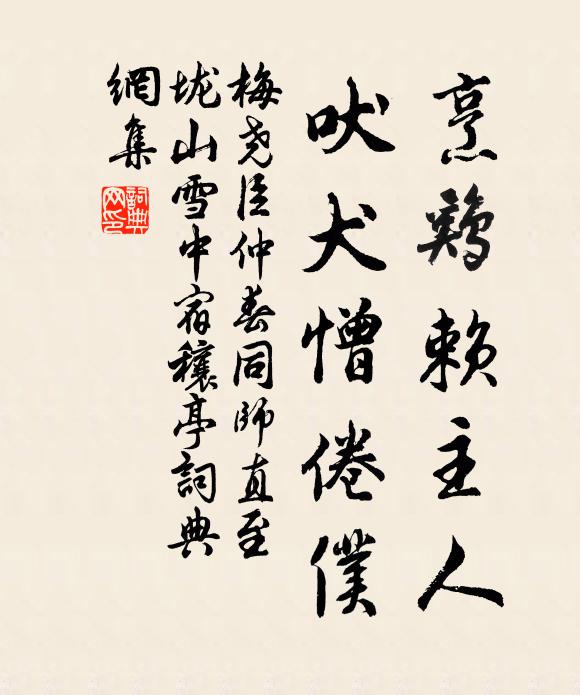 烹鷄賴主人
吠犬憎倦僕
梅堯臣仲春同師直至
垅山雪中宿穰亭詞典
網集
詞典
网印